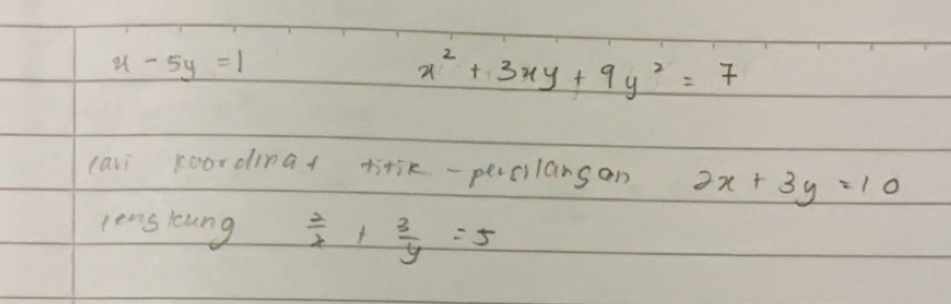 x - 5y = 1 x² + 3xy + 9y² = 7
cari koordinat titik - persilangan 2x + 3y = 10
lengkung 2/x + 3/y = 5